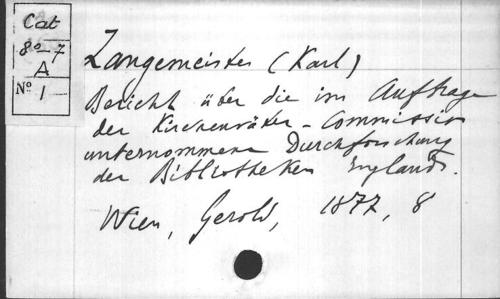 Cat
8°-7
A
N° 1
Zangemeister (Karl)
Bericht über die im Auftrage
der Kirchenväter-Commission
unternommene Durchforschung
der Bibliotheken Englands.
Wien, Gerold, 1877, 8